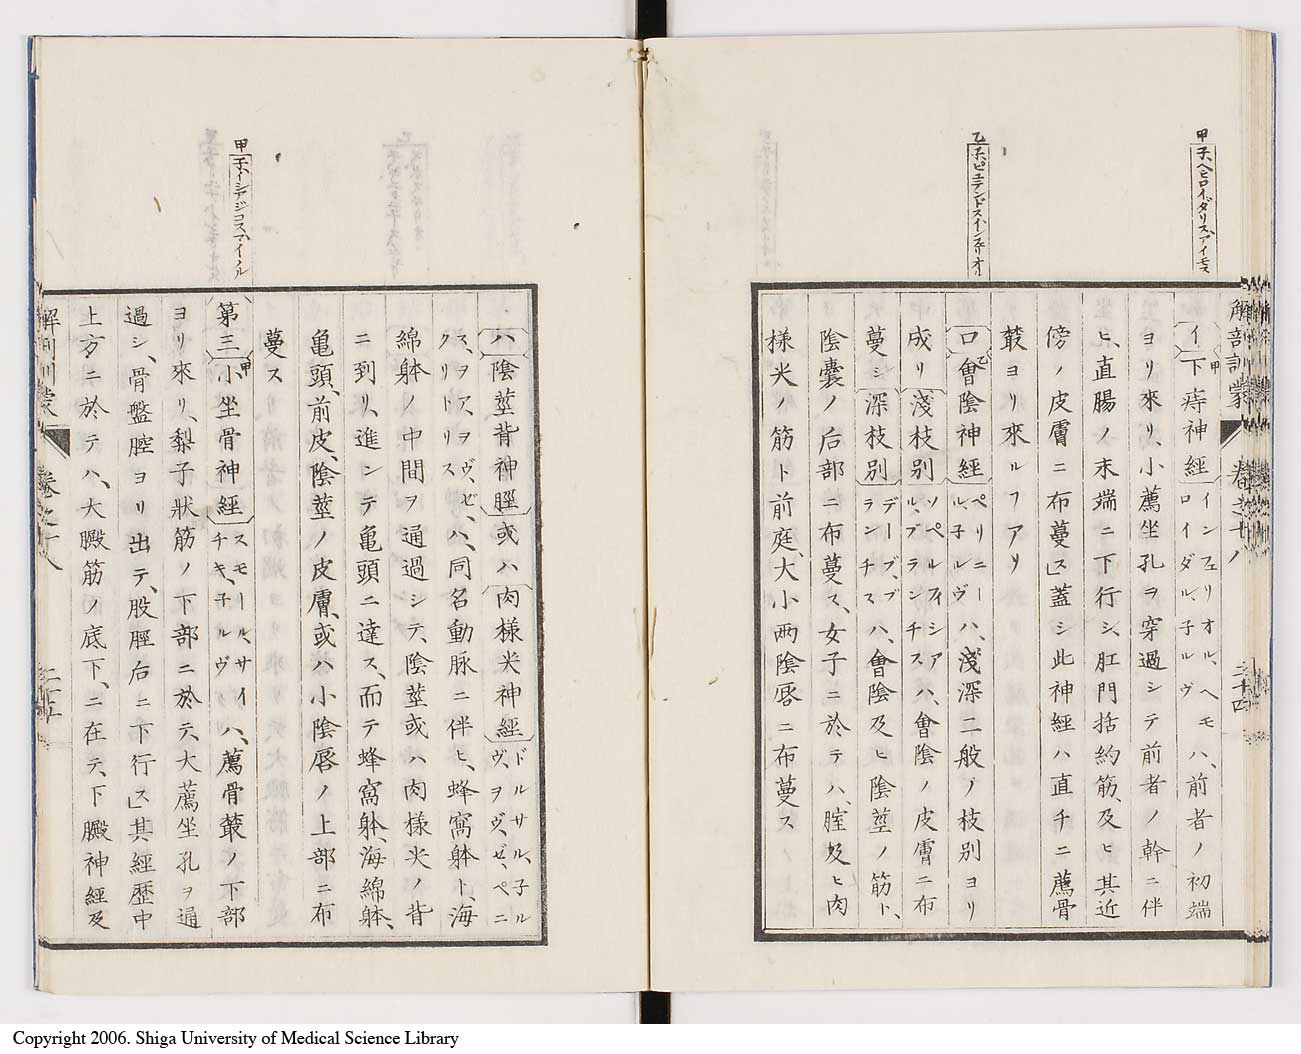 甲
子、ヘモロイダリス、アイモス
乙
子、ピュデンドス、インフェリオ
解剖訓蒙 巻之十八 三十四
イ 下痔神經 インフェリオル、ヘモロイダル、子ルヴ ハ、前者ノ初端
ヨリ來リ、小薦坐孔ヲ穿過シテ前者ノ幹ニ伴
ヒ、直腸ノ末端ニ下行シ、肛門括約筋、及ヒ其近
傍ノ皮膚ニ布蔓ス」蓋シ此神經ハ直チニ薦骨
叢ヨリ來ルヿアリ
ロ 會陰神經 ペリニール、子ルヴ ハ、淺深二般ノ枝別ヨリ
成リ 淺枝別 ソペルフィシアル、ブランチス ハ、會陰ノ皮膚ニ布
蔓シ 深枝別 デープ、ブランチス ハ、會陰及ヒ陰莖ノ筋ト、
陰囊ノ后部ニ布蔓ス、女子ニ於テハ、腟及ヒ肉
様尖ノ筋ト前庭、大小两陰唇ニ布蔓ス
甲
子、イシアジコス、マイノル
ハ 陰莖背神脛 或ハ 肉様尖神經 ドルサル、子ルヴ、ヲヴ、ゼ、ペニ
ス、ヲア、ヲヴ、ゼ、クリトリス ハ、同名動脉ニ伴ヒ、蜂窩躰ト、海
綿躰ノ中間ヲ通過シテ、陰莖或ハ肉様尖ノ背
ニ到リ、進ンテ亀頭ニ達ス、而テ蜂窩躰、海綿躰、
亀頭、前皮、陰莖ノ皮膚、或ハ小陰唇ノ上部ニ布
蔓ス
第三 小坐骨神經 スモール、サイチキ、子ルヴ ハ、薦骨叢ノ下部
ヨリ來リ、梨子狀筋ノ下部ニ於テ、大薦坐孔ヲ通
過シ、骨盤腔ヨリ出テ、股脛后ニ下行ス」其經歴中
上方ニ於テハ、大臋筋ノ底下ニ在テ、下臋神經及
解剖訓蒙 巻之十八
Copyright 2006. Shiga University of Medical Science Library